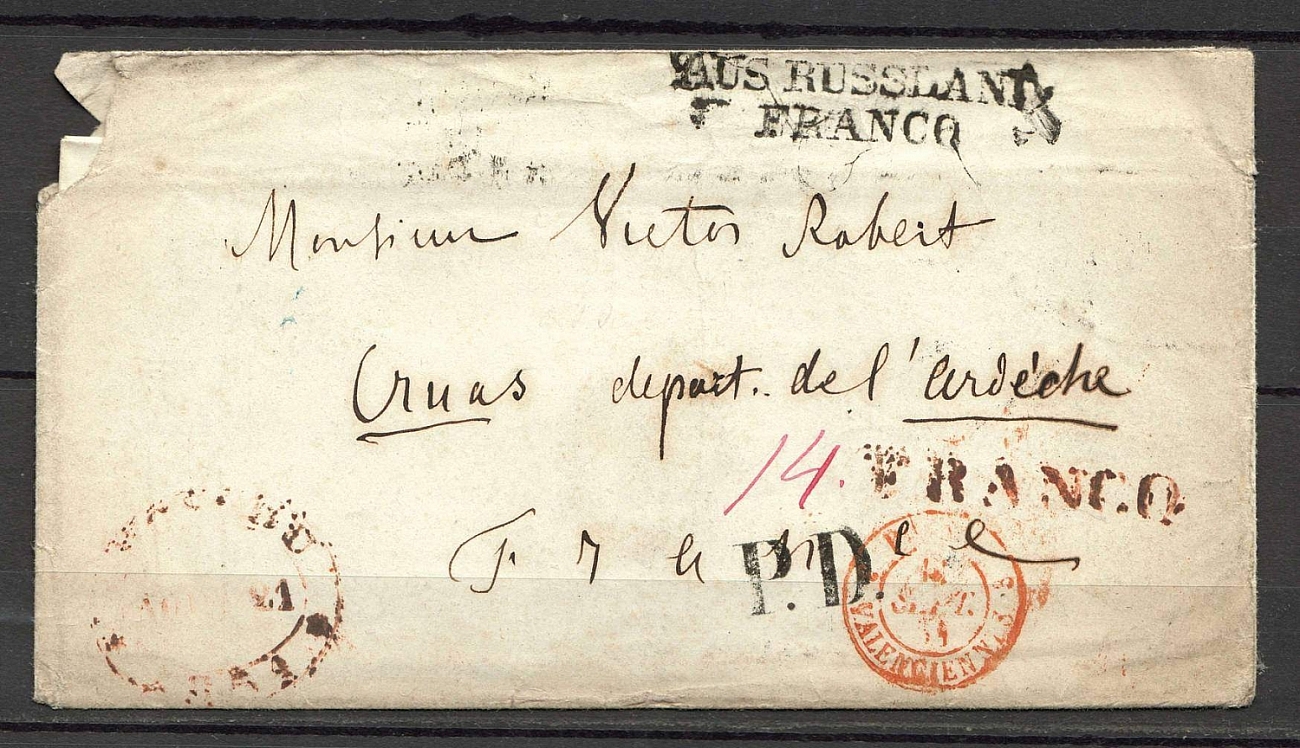 AUS RUSSLAND
FRANCO
Monsieur Victor Robert
Cruas depart. de l'Ardéche
14. FRANCO
France
P.D.
SEPT.
VALENCIENNES